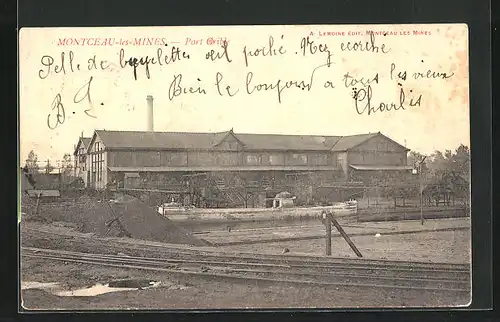 MONTCEAU-les-MINES. — Port Crible
A. LEMOINE ÉDIT. MONTCEAU LES MINES
Pelle de bicyclettes œil poché. Nez ecorche
Bien le bonjour a tous les vieux
B. L.
Charlis